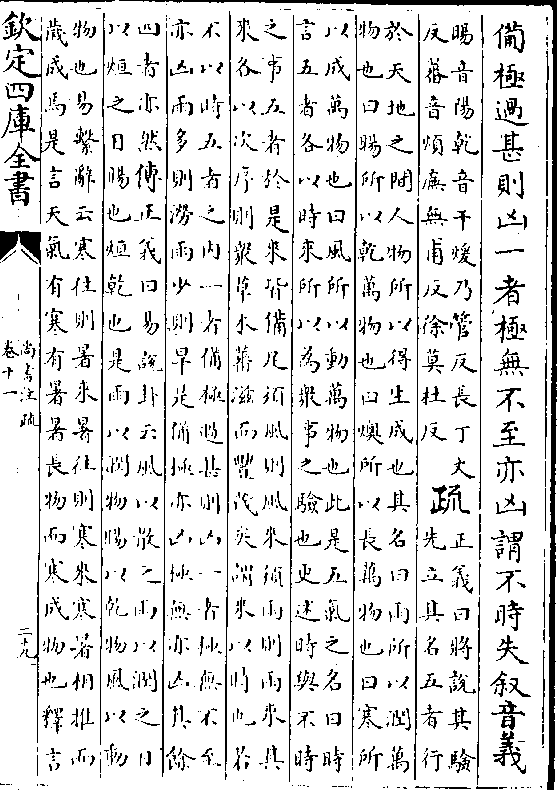 備極過甚則凶一者極無不至亦凶謂不時失叙音義
暘音陽乾音干煖乃管反長丁丈
反蕃音煩廡無甫反徐莫杜反
疏
正義曰將說其驗
先立其名五者行
於天地之間人物所以得生成也其名曰雨所以潤萬
物也曰暘所以乾萬物也曰燠所以長萬物也曰寒所
以成萬物也曰風所以動萬物也此是五氣之名曰時
言五者各以時來所以為衆事之驗也更述時與不時
之事五者於是來皆備足須風則風來須雨則雨來其
來各以次序則衆草木蕃滋而豐茂矣謂來以時也若
不以時五者之内一者備極過甚則凶一者極無不至
亦凶雨多則澇雨少則旱是備極亦凶極無亦凶其餘
四者亦然傳正義曰易說卦云風以散之雨以潤之日
以烜之日暘也烜乾也是雨以潤物暘以乾物風以動
物也易繫辭云寒往則暑來暑往則寒來寒暑相推而
歲成焉是言天氣有寒有暑暑長物而寒成物也釋言
欽定四庫全書
尚書注疏
卷十一
二九